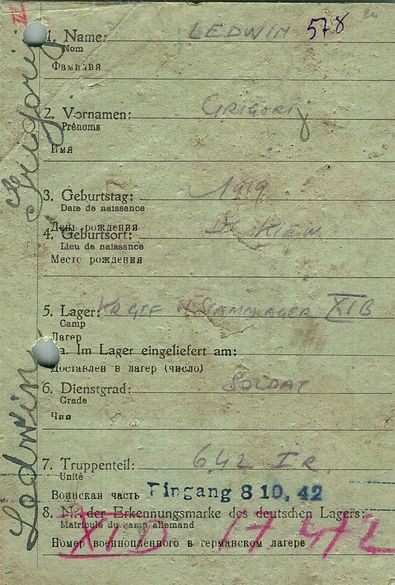 1. Name: LEDWIN 578
Nom
Фамилия
2. Vornamen: GRIGORIJ
Prénoms
Имя
3. Geburtstag: 1919
Date de naissance
День рождения
4. Geburtsort: KIEW
Lieu de naissance
Место рождения
5. Lager: KRGEF M STAMMLAGER XIB
Camp
Лагер
a. Im Lager eingeliefert am:
Доставлен в лагер (число)
6. Dienstgrad: SOLDAT
Grade
Чин
7. Truppenteil: 642 I.R.
Unité
Воинская часть Eingang 8 10. 42
8. Nr. der Erkennungsmarke des deutschen Lagers:
Matricule du camp allemand
Номер военнопленного в германском лагере
XID 17472
Ledwin Grigorij